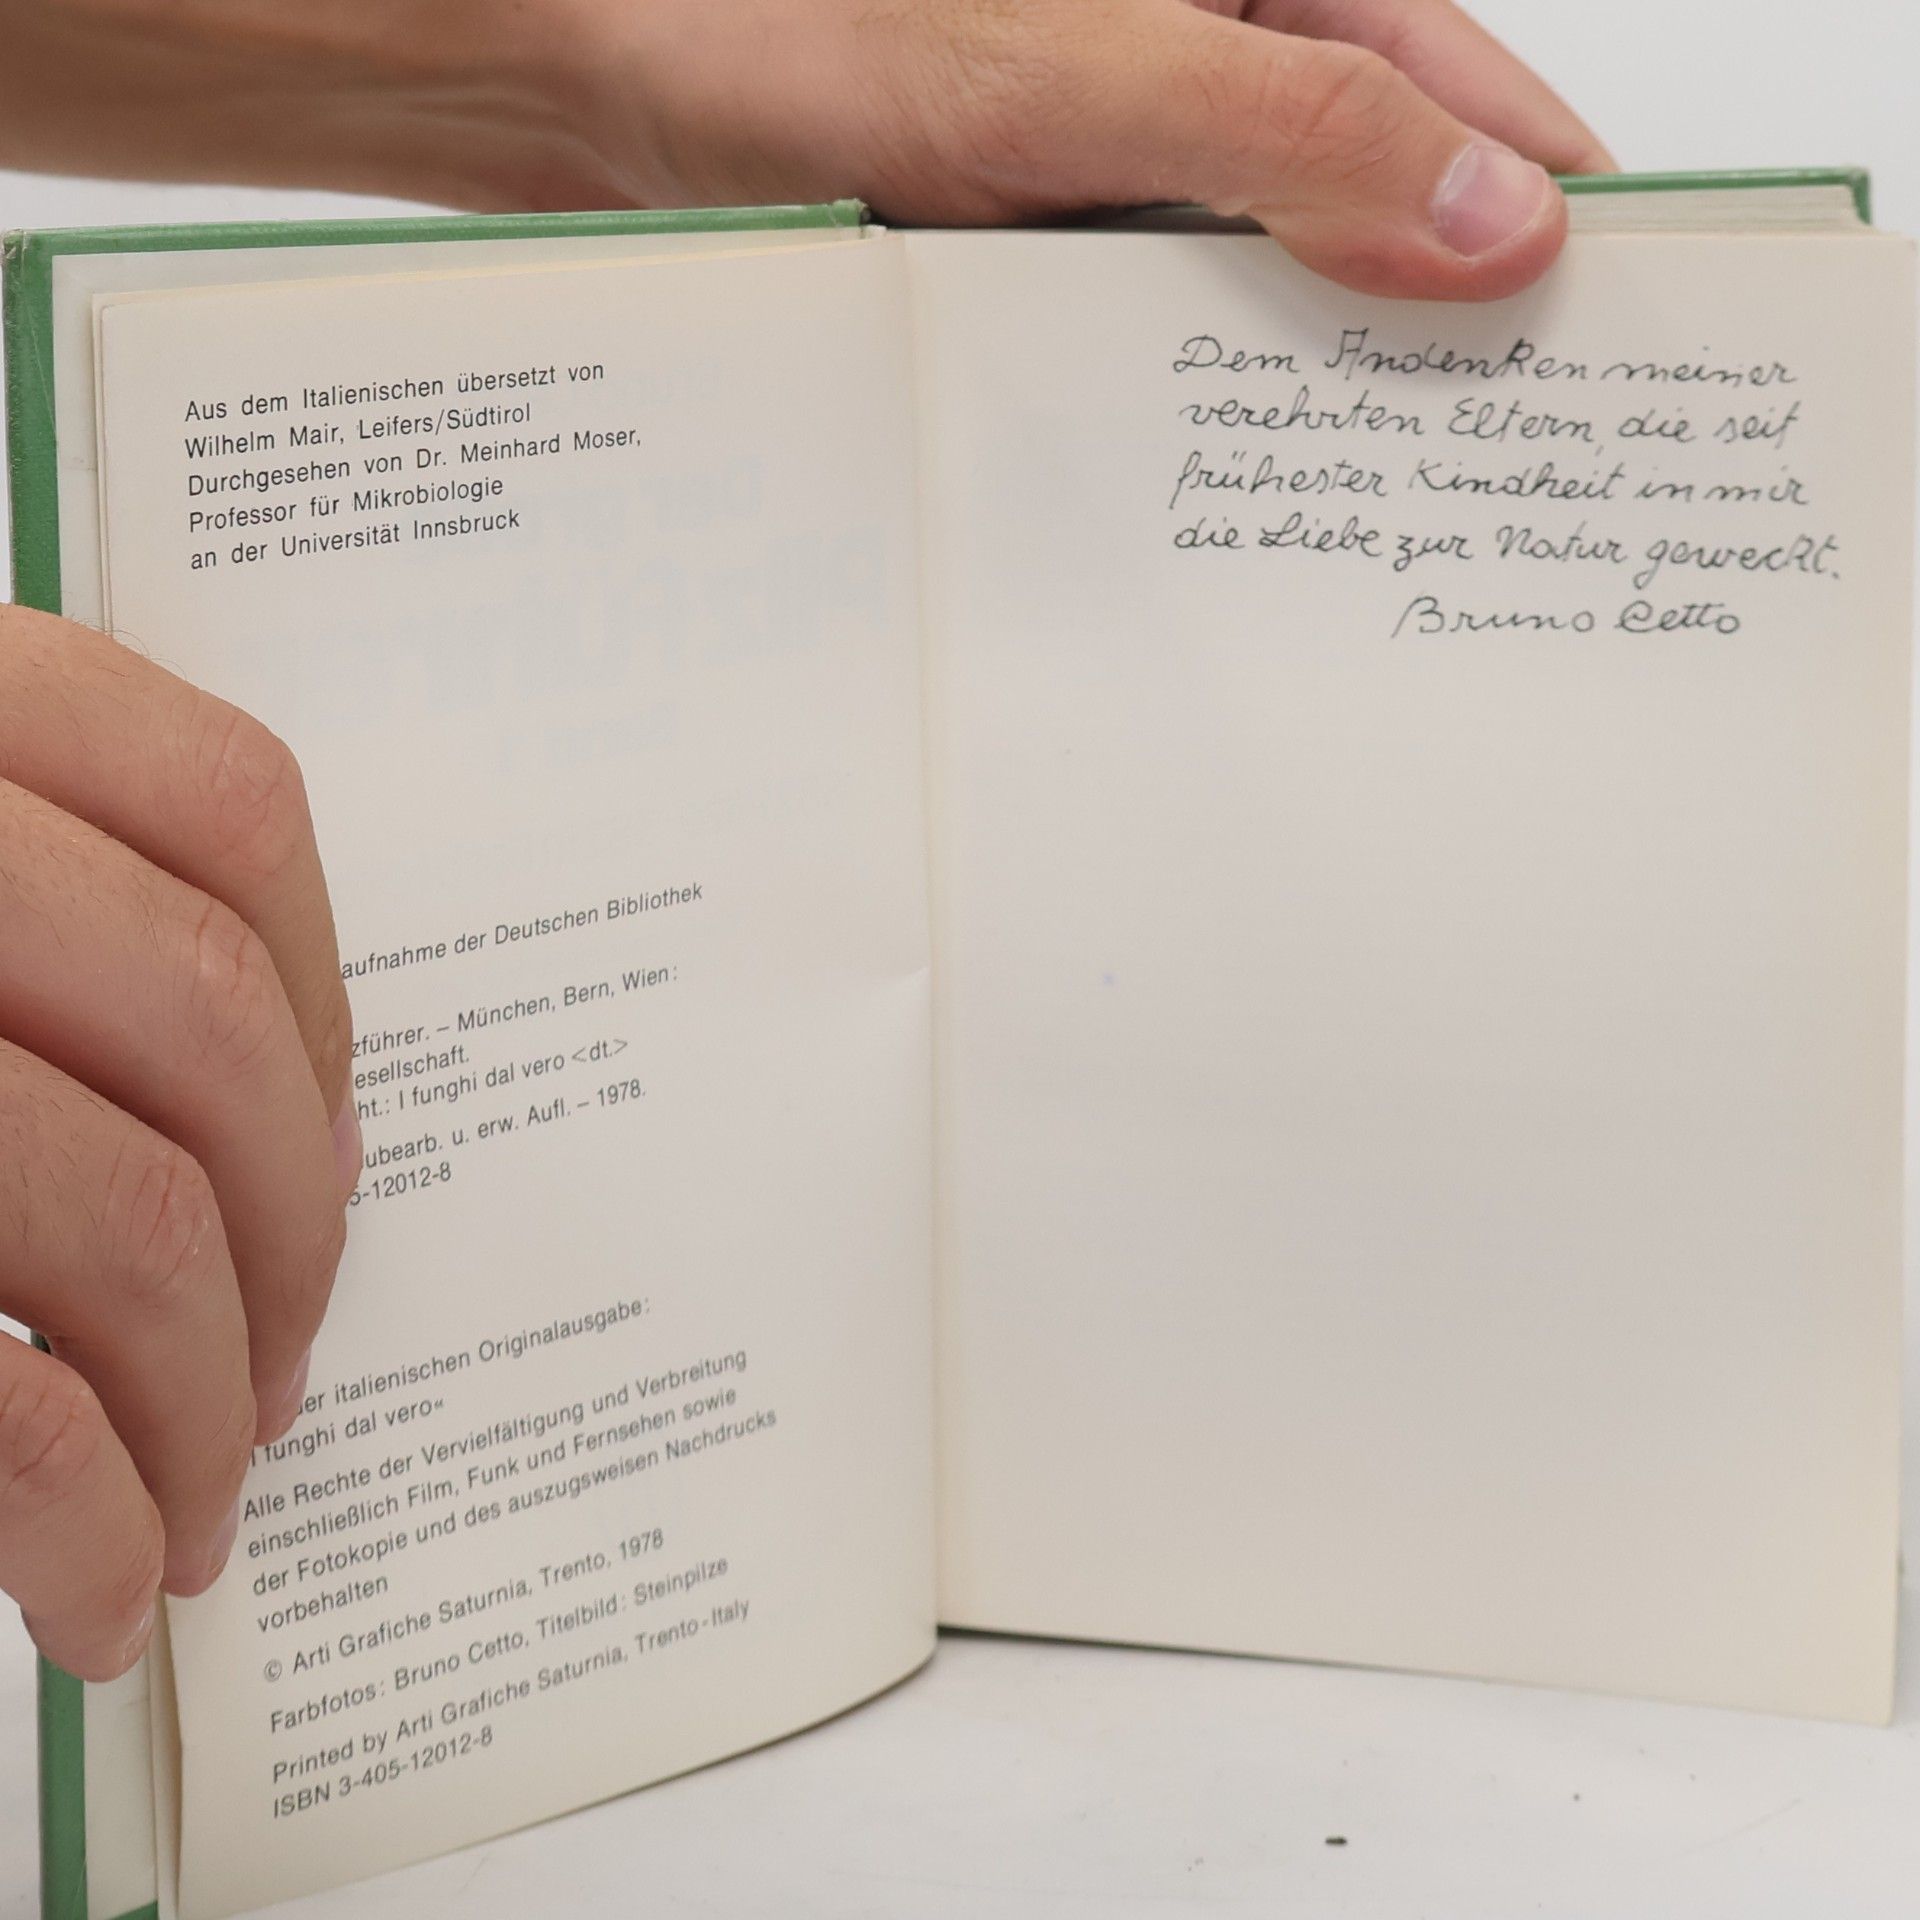 Aus dem Italienischen übersetzt von
Wilhelm Mair, Leifers/Südtirol
Durchgesehen von Dr. Meinhard Moser,
Professor für Mikrobiologie
an der Universität Innsbruck
aufnahme der Deutschen Bibliothek
zführer. – München, Bern, Wien:
esellschaft.
ht.: I funghi dal vero <dt.>
ubearb. u. erw. Aufl. – 1978.
5-12012-8
er italienischen Originalausgabe:
I funghi dal vero«
Alle Rechte der Vervielfältigung und Verbreitung
einschließlich Film, Funk und Fernsehen sowie
der Fotokopie und des auszugsweisen Nachdrucks
vorbehalten
© Arti Grafiche Saturnia, Trento, 1978
Farbfotos: Bruno Cetto, Titelbild: Steinpilze
Printed by Arti Grafiche Saturnia, Trento-Italy
ISBN 3-405-12012-8
Dem Andenken meiner
verehrten Eltern, die seit
frühester Kindheit in mir
die Liebe zur Natur geweckt.
Bruno Cetto